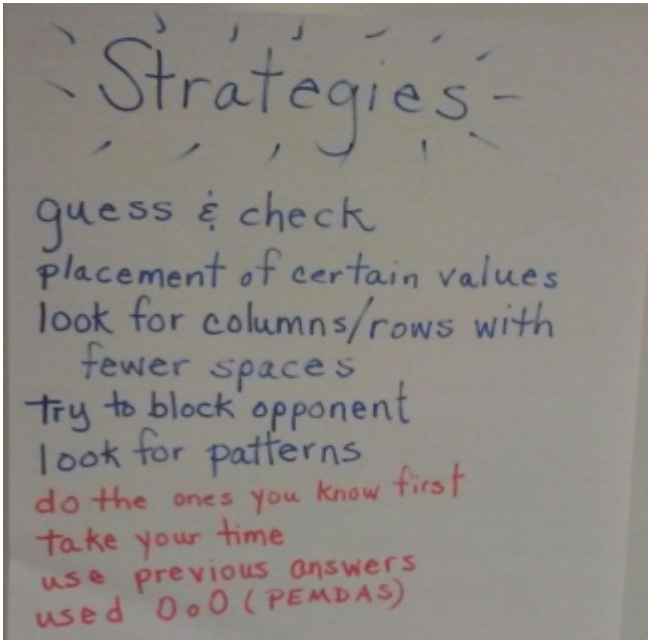 Strategies
guess & check
placement of certain values
look for columns/rows with
fewer spaces
try to block opponent
look for patterns
do the ones you know first
take your time
use previous answers
used OoO (PEMDAS)